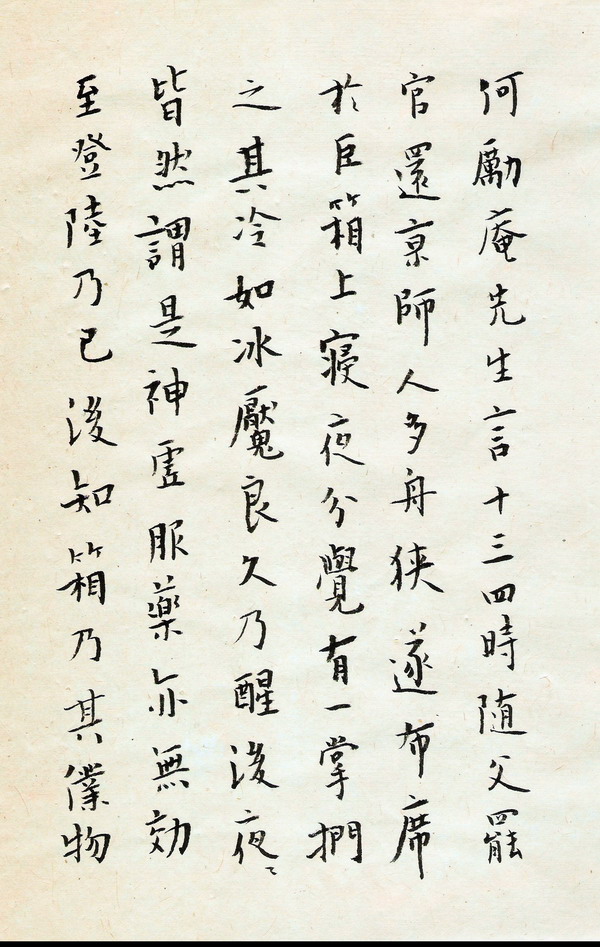 何勵庵先生言十三四時隨父罷
官還京師人多舟狹遂布席
於巨箱上寢夜分覺有一掌捫
之其冷如冰魘良久乃醒後夜々
皆然謂是神虛服藥亦無効
至登陸乃已後知箱乃其僕物